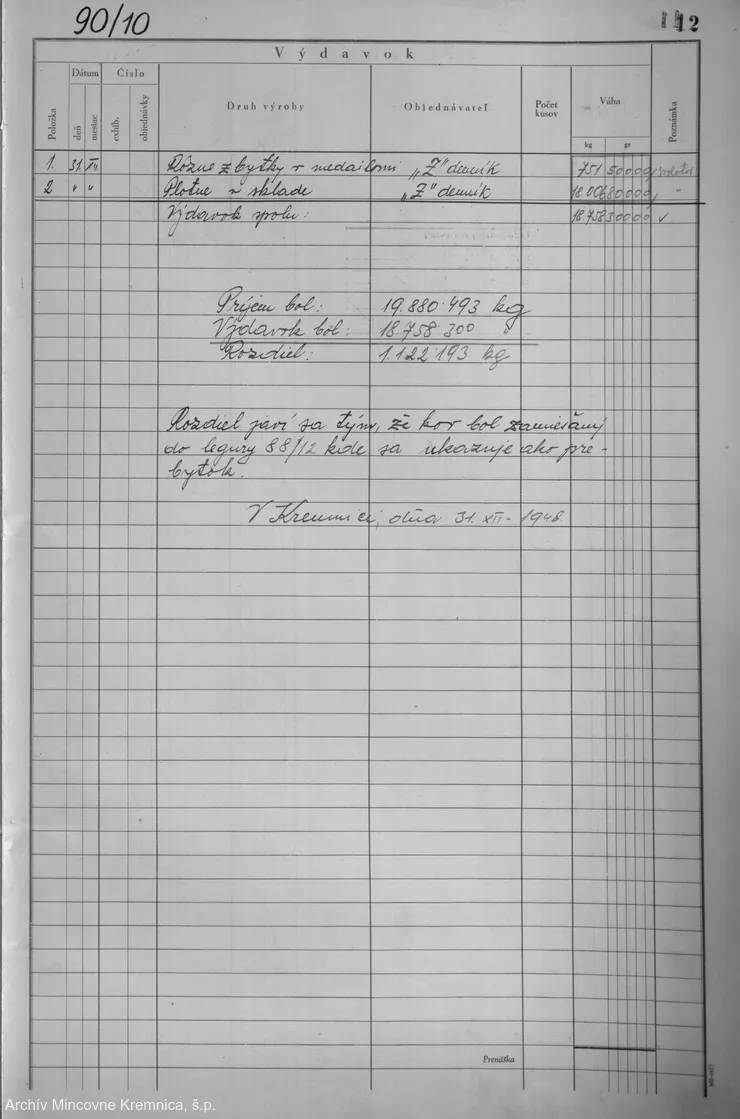 90/10
12
Výdavok
Položka
Dátum
deň
mesiac
Číslo
exhib.
objednávky
Druh výroby
Objednávateľ
Počet kusov
Váha
kg gr
Poznámka
1. 31. XII Rôzne zbytky v medailoni „Z" denník 751 50000
2 " " Plotne v sklade „Z" denník 18.006 80000 "
Výdavok spolu: 18.758 30000
Príjem bol: 19.880.493 kg
Výdavok bol: 18.758.300 "
Rozdiel: 1.122.193 kg
Rozdiel javí sa tým, že kov bol zamiešaný
do legury 88/12 kde sa ukazuje ako pre-
bytok.
V Kremnici, dňa 31. XII - 1948.
Prenáška
Archív Mincovne Kremnica, š.p.